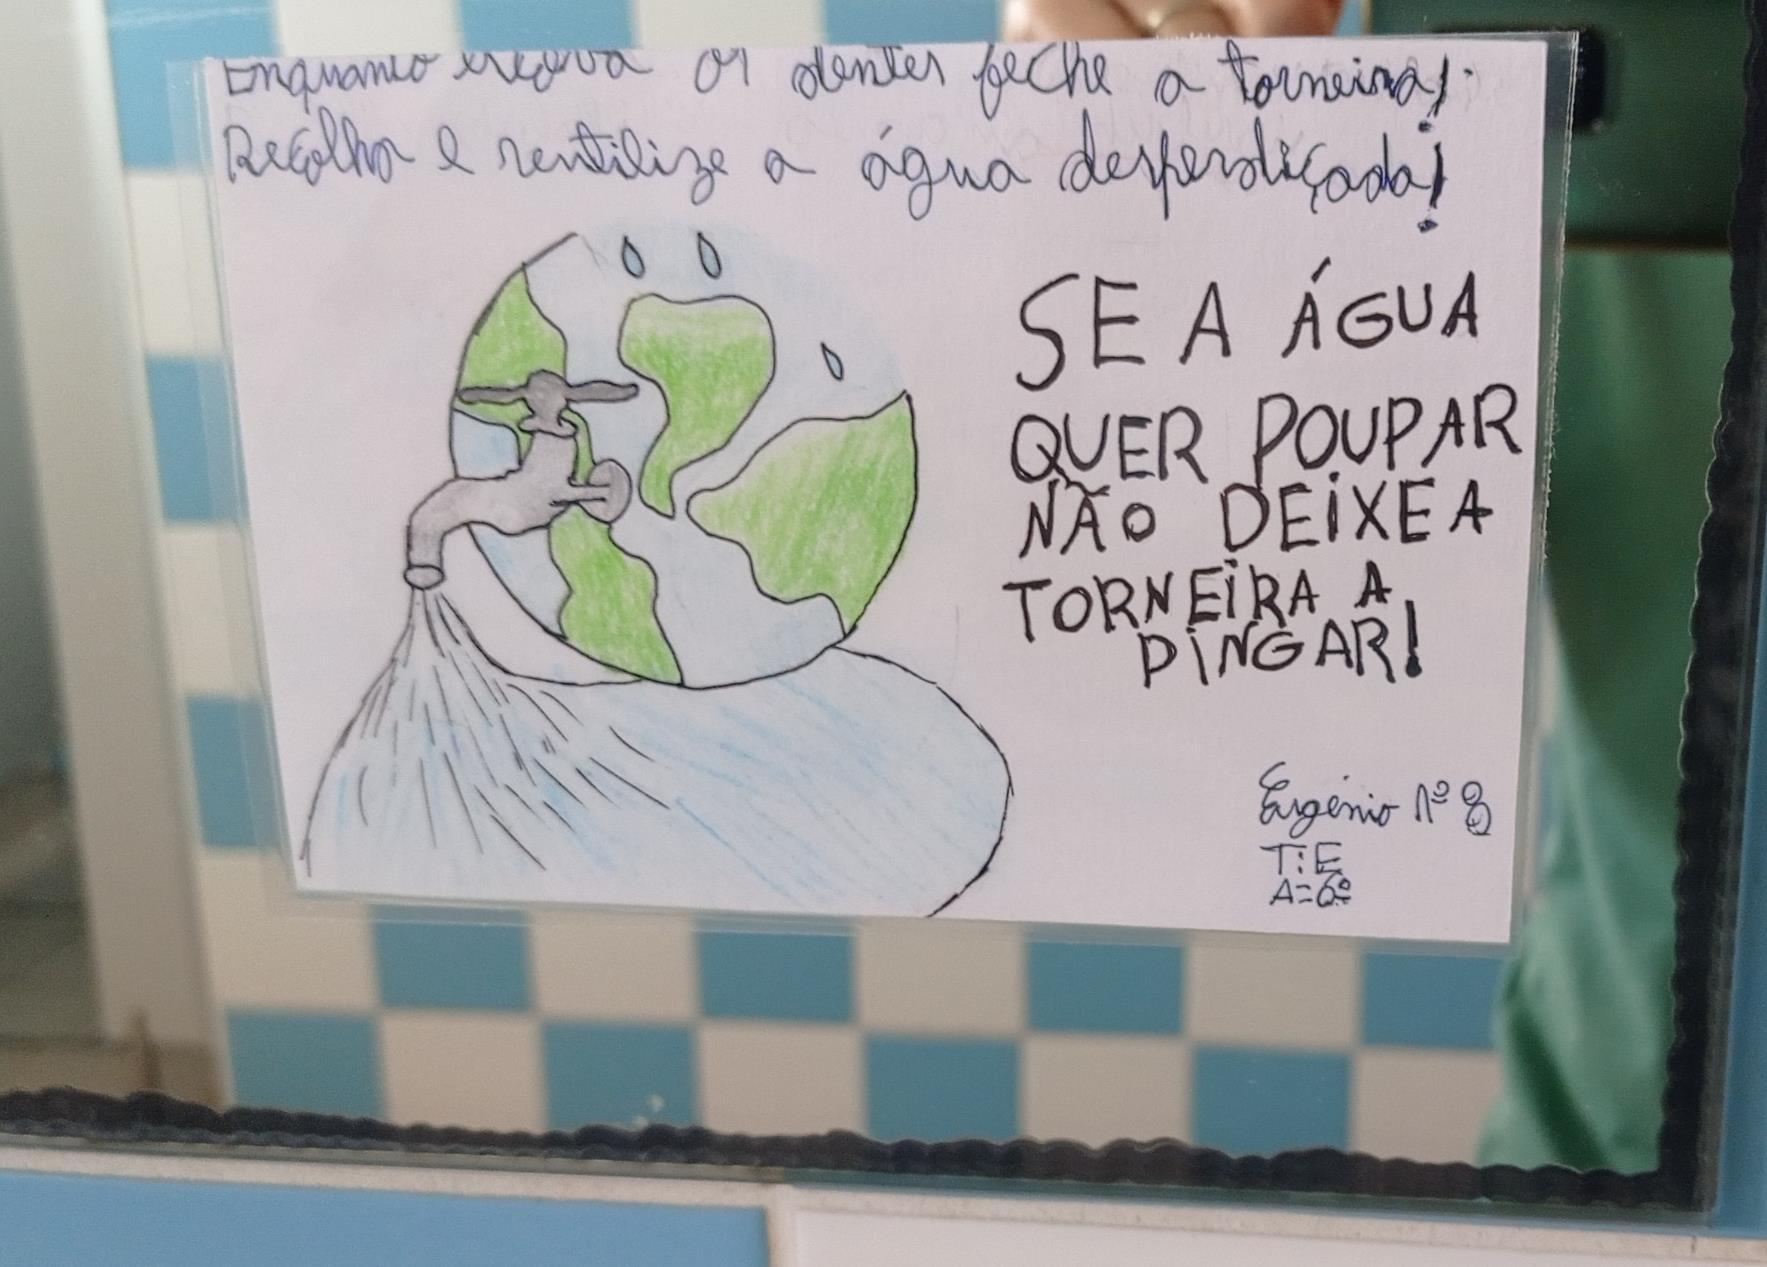 Enquanto escova os dentes feche a torneira!
Recolha e reutilize a água desperdiçada!
SE A ÁGUA
QUER POUPAR
NÃO DEIXE A
TORNEIRA A
PINGAR!
Eugénio Nº 8
T: E
A = 6º